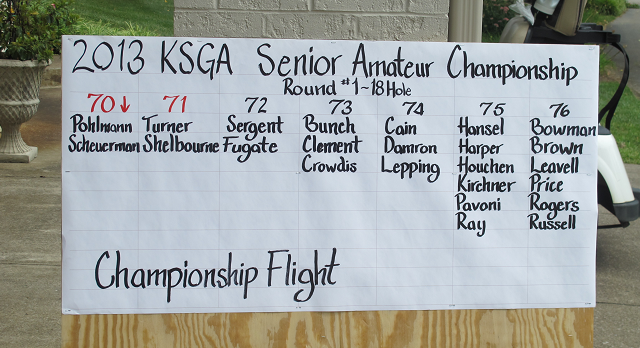 2013 KSGA Senior Amateur Championship
Round #1~18 Hole
70↓ 71 72 73 74 75 76
Pohlmann Turner Sergent Bunch Cain Hansel Bowman
Scheuerman Shelbourne Fugate Clement Damron Harper Brown
Crowdis Lepping Houchen Leavell
Kirchner Price
Pavoni Rogers
Ray Russell
Championship Flight